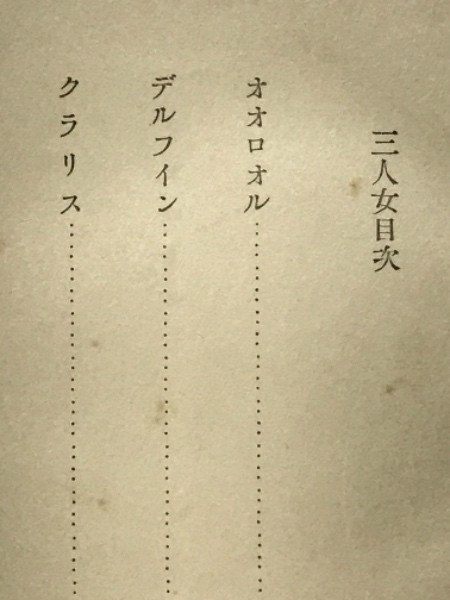 三人女目次
オオロオル……………………
デルフイン……………………
クラリス……………………